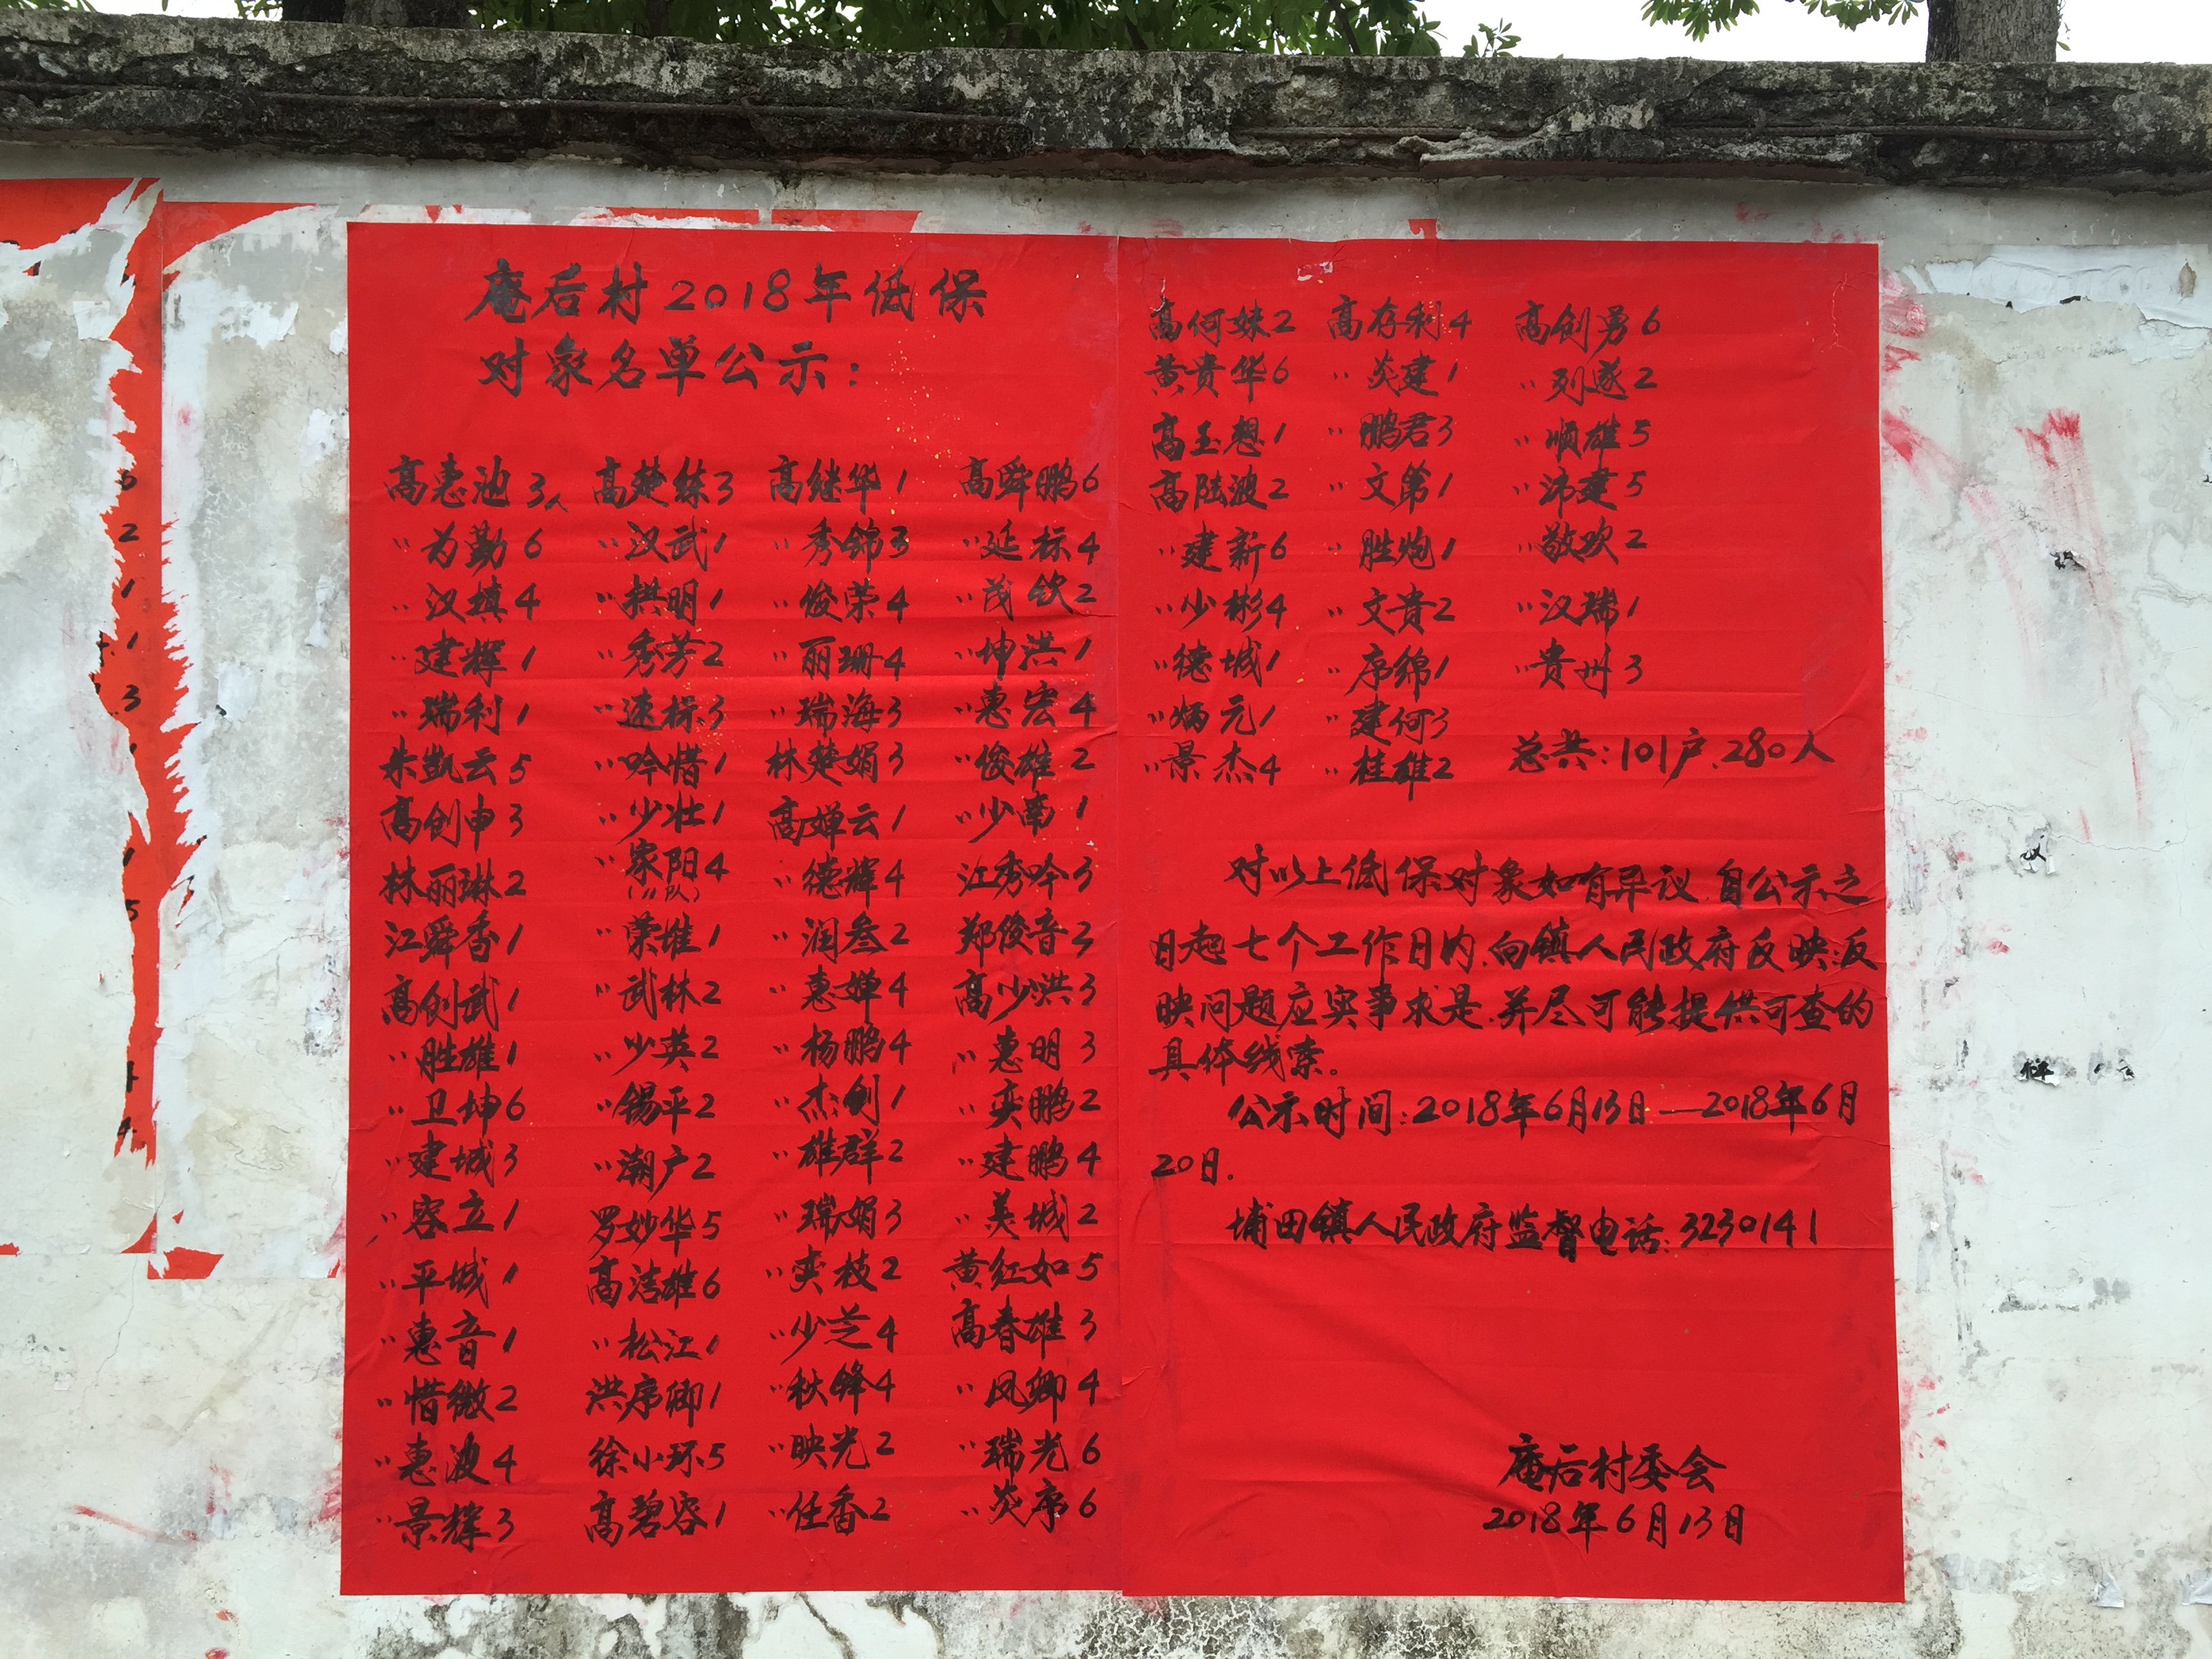 庵后村2018年低保
对象名单公示:
高惠池3人 高楚练3 高继华1 高舜鹏6
〃为勤6 〃汉武1 〃秀锦3 〃延标4
〃汉填4 〃拱明1 〃俊荣4 〃茂钦2
〃建辉1 〃秀芳2 〃丽珊4 〃坤洪1
〃瑞利1 〃速标3 〃瑞海3 〃惠宏4
朱凯云5 〃吟惜1 林楚娟3 〃俊雄2
高创申3 〃少壮1 高婵云1 〃少南1
林丽琳2 〃家阳4 〃德辉4 江秀吟3
江舜香1 〃荣堆1 〃润叁2 郑俊音3
高创武1 〃武林2 〃惠婵4 高少洪3
〃胜雄1 〃少英2 〃杨鹏4 〃惠明3
〃卫坤6 〃锡平2 〃杰创1 〃奕鹏2
〃建城3 〃潮广2 〃雄群2 〃建鹏4
〃容立1 罗妙华5 〃瑞娟3 〃美城2
〃平城1 高洁雄6 〃奕枝2 黄红如5
〃惠音1 〃松江1 〃少芝4 高春雄3
〃惜微2 洪序卿1 〃秋锋4 〃凤卿4
〃惠波4 徐小环5 〃映光2 〃瑞光6
〃景辉3 高碧容1 〃任香2 〃炎序6
高何妹2 高存利4 高创勇6
黄贵华6 〃炎建1 〃列遂2
高玉想1 〃鹏君3 〃顺雄5
高陆波2 〃文第1 〃沛建5
〃建新6 〃胜炮1 〃敬欢2
〃少彬4 〃文贵2 〃汉瑞1
〃德城1 〃序绵1 〃贵州3
〃炳元1 〃建何3
〃景杰4 〃桂雄2 总共:101户.280人
对以上低保对象如有异议.自公示之
日起七个工作日内.向镇人民政府反映.反
映问题应实事求是.并尽可能提供可查的
具体线索。
公示时间:2018年6月13日—2018年6月
20日.
埔田镇人民政府监督电话:3230141
庵后村委会
2018年6月13日